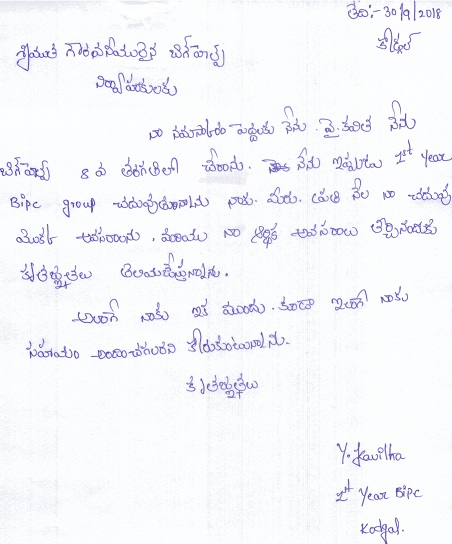 తేది:- 30/9/2018
కోడ్గల్
శ్రీయుత గౌరవనీయులైన బిగ్‌హెల్ప్
నిర్వాహకులకు
నా నమస్కారం పెద్దలకు నేను. వై. కవిత నేను
బిగ్‌హెల్ప్ 8 వ తరగతిలో చేరాను. నేను ఇప్పుడు 1st Year
Bipc group చదువుతున్నాను నాకు. మీరు. ప్రతి నెల నా చదువు
యొక్క అవసరాలను. మరియు నా ఆర్థిక అవసరాలు తీర్చినందుకు
కృతజ్ఞతలు తెలియచేస్తున్నాను.
అలాగే నాకు ఇక ముందు. కూడా ఇలాగే నాకు
సహాయం అందించగలరని కోరుకుంటున్నాను.
కృతజ్ఞతలు
Y. Kavitha
1st Year Bipc
Kodgal.